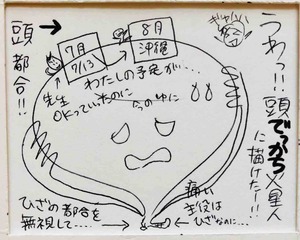 うわっ!!頭
でっかち
星人
に描けたー!!
頭→
都合!!
7月
7/13
8月
沖縄
わたしの予定が…
先生
OKっていったのに
ひざの都合を
無視して…→
痛い
主役は
ひざなのに…